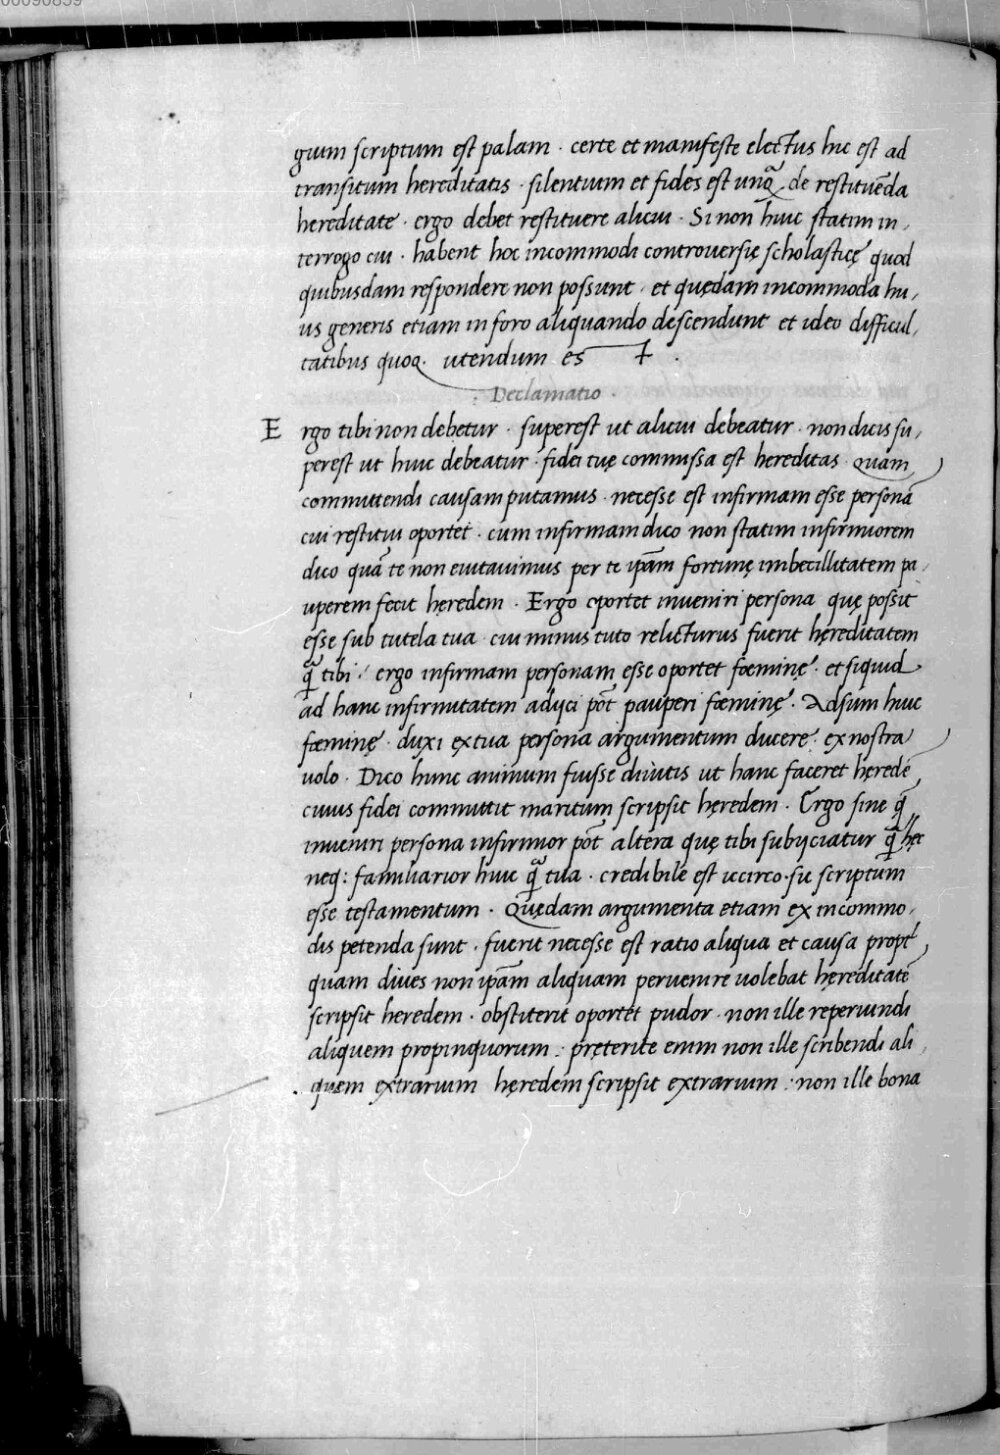 00090859
gium scriptum est palam · certe et manifeste electus hic est ad
transitum hereditatis · silentium et fides est unq̃ de restituẽda
hereditate · ergo debet restituere alicui · Si non huic statim in,
terrogo cui · habent hoc incommodi controuersię scholasticę quod
quibusdam respondere non possunt · et quędam incommoda hu,
ius generis etiam in foro aliquando descendunt et ideo difficul,
tatibus quoq. utendum es
Declamatio ·
Ergo tibi non debetur · superest ut alicui debeatur · non dicis su,
perest ut huic debeatur · fidei tuę commissa est hereditas · quam
committendi causam putamus · necesse est infirmam esse personã
cui restitui oportet · cum infirmam dico non statim infirmiorem
dico quã te non euitauimus per te ip̃am fortunę imbecillitatem pa,
uperem fecit hęredem · Ergo oportet inueniri persona quę possit
esse sub tutela tua · cui minus tuto relicturus fuerit hęreditatem
q̃ tibi · ergo infirmam personam esse oportet fœminę · et siquid
ad hanc infirmitatem adijci põt pauperi fœminę · Adsum huic
fœminę · duxi ex tua persona argumentum ducere · ex nostra
uolo · Dico hunc animum fuisse diuitis ut hanc faceret hęredẽ
cuius fidei committit maritum scripsit hęredem · Ergo sine q̃
inueniri persona infirmior põt altera quę tibi subijciatur q̃ hęc
neq: familiarior huic q̃ tua · credibile est iccirco · sic scriptum
esse testamentum · Quędam argumenta etiam ex incommo,
dis petenda sunt · fuerit necesse est ratio aliqua et causa propt
quam diues non ip̃am aliquam peruenire uolebat hęreditatẽ
scripsit heredem · obstiterit oportet pudor · non ille reperiundi
aliquem propinquorum : pręterite enim non ille scribendi ali,
quem extrarium hęredem scripsit extrarium : non ille bona